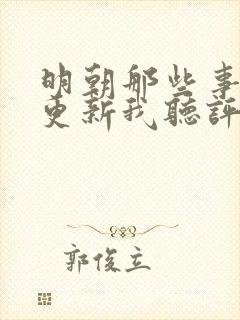 明朝那些事
更新我聽評
郭俊立